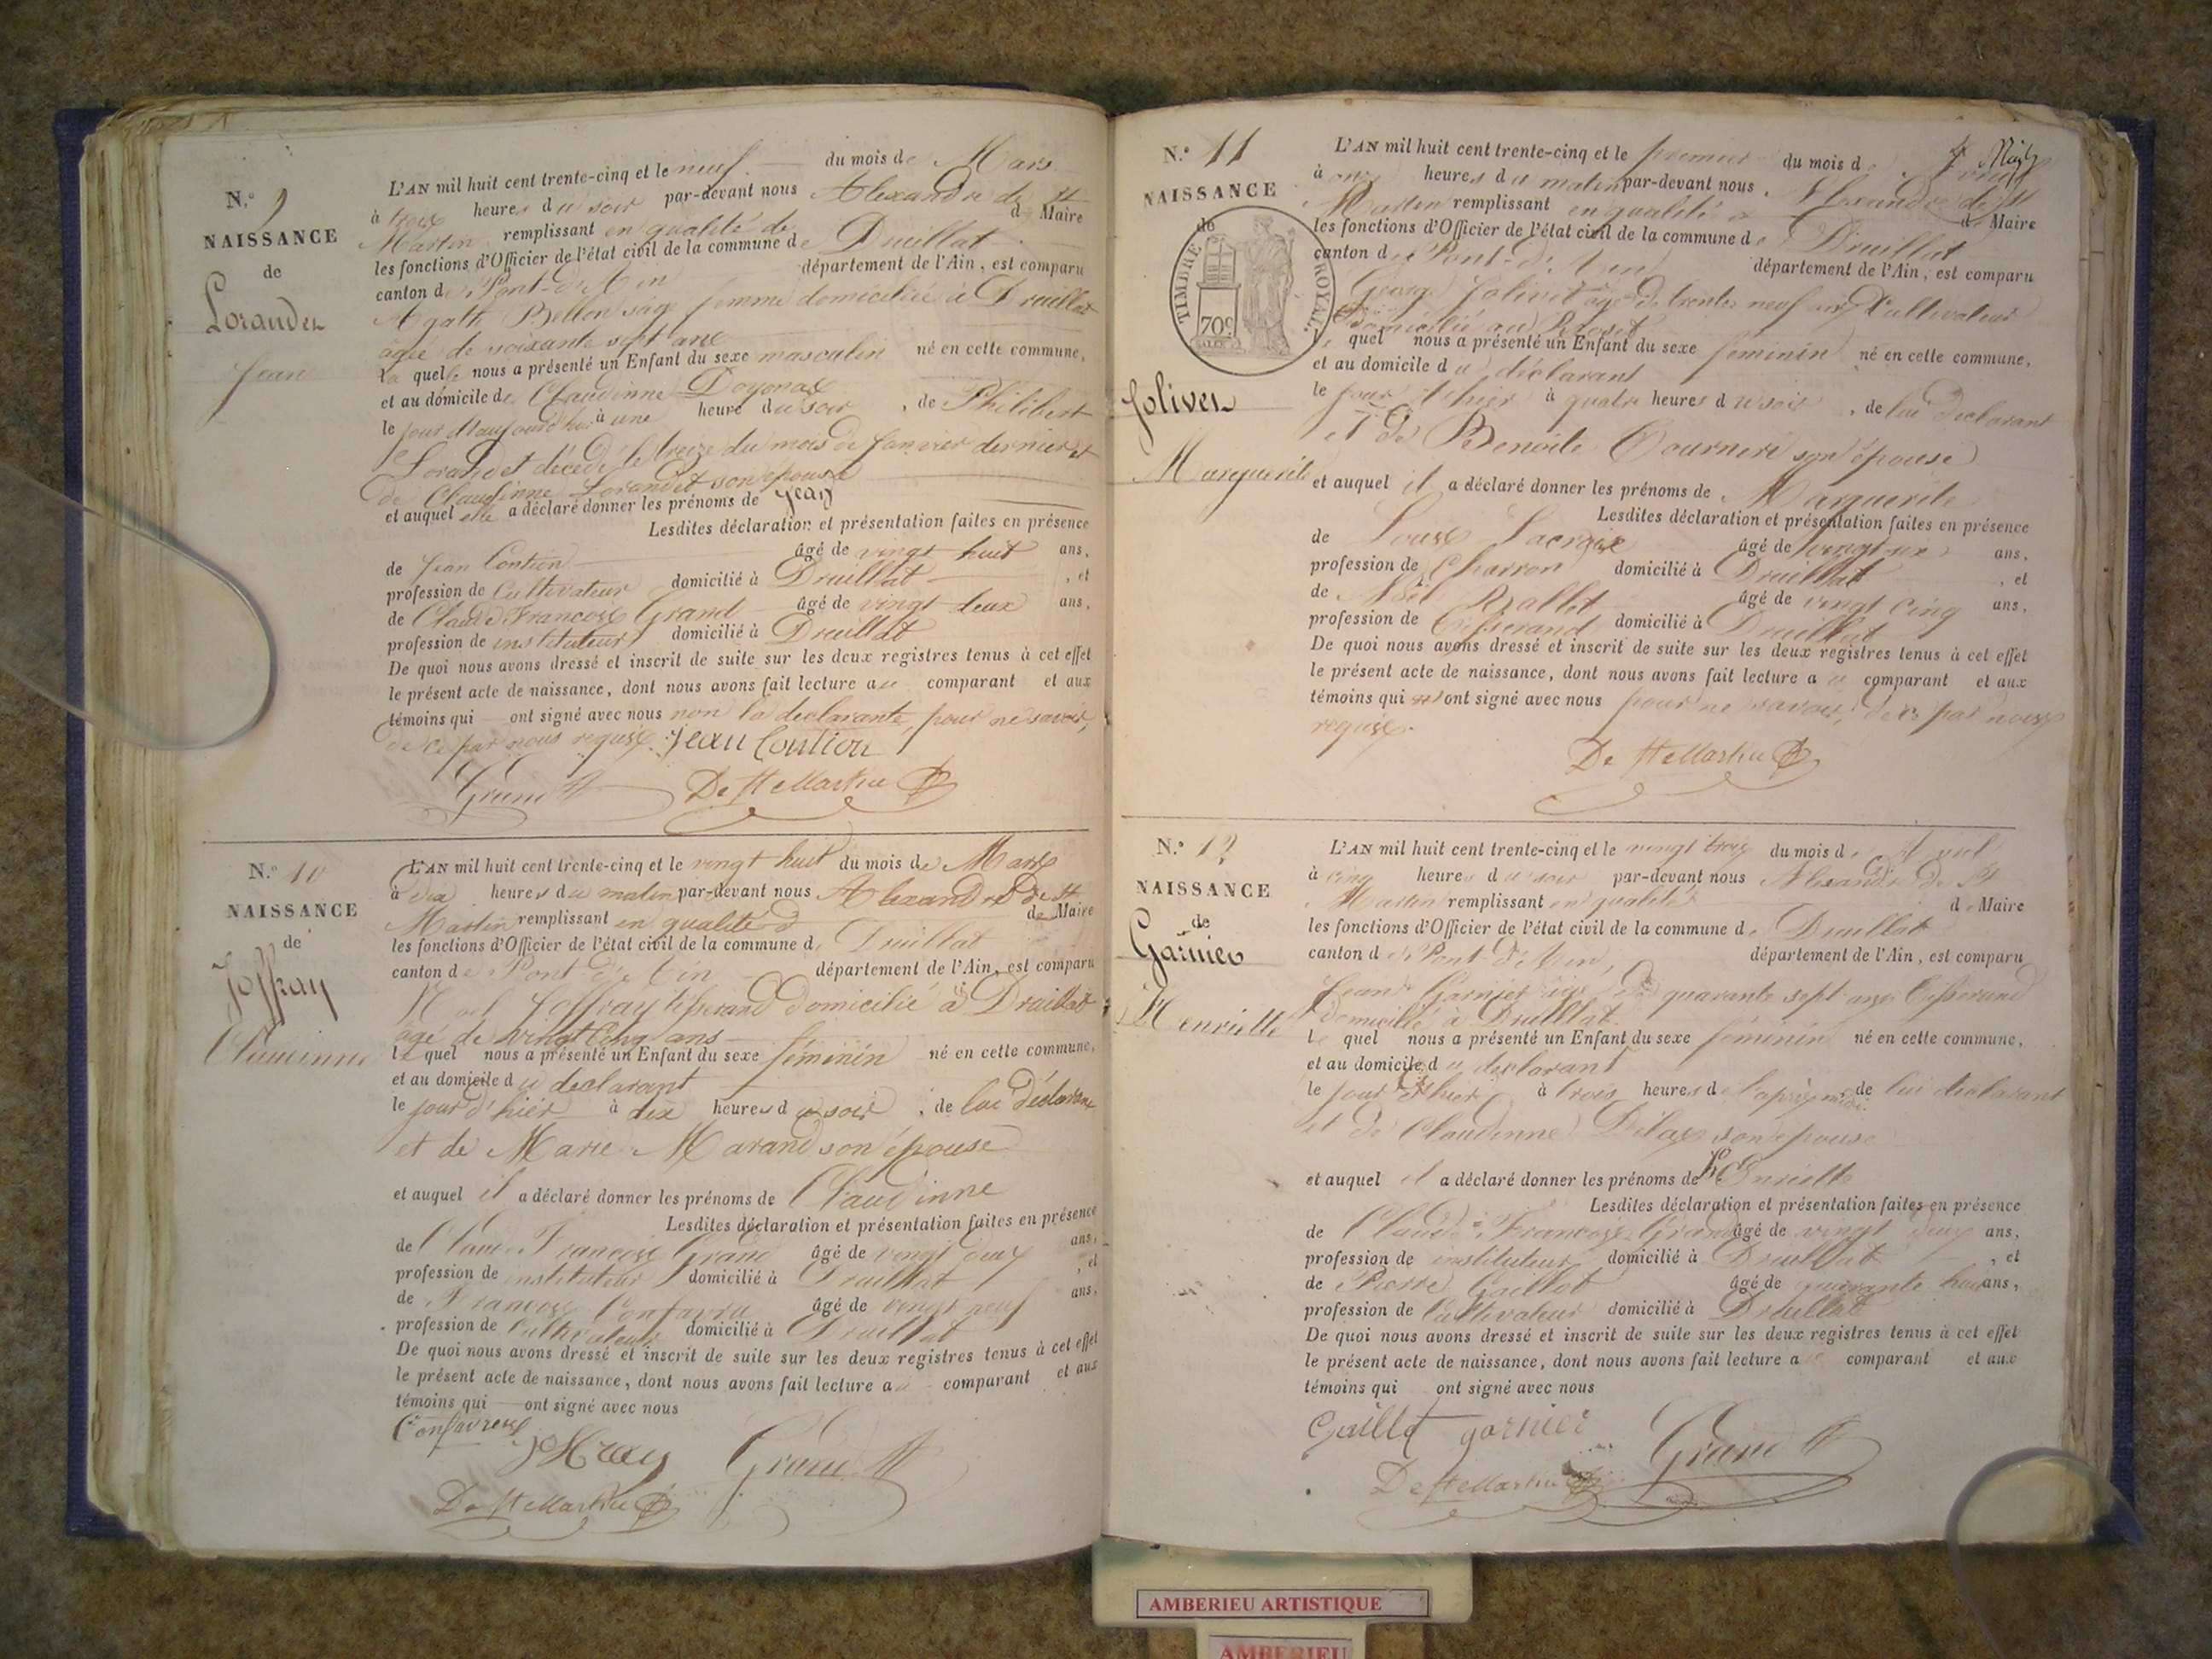 N.° 9
NAISSANCE
de
Lorandet
Jean
L'AN mil huit cent trente-cinq et le neuf du mois de Mars
à trois heures du soir par-devant nous Alexandre de St
Martin remplissant en qualité de d Maire
les fonctions d'Officier de l'état civil de la commune de Druillat
canton de Pont-d'Ain département de l'Ain, est comparu
Agathe Bellon sage femme domiciliée à Druillat
âgée de soixante sept ans
la quelle nous a présenté un Enfant du sexe masculin né en cette commune,
et au domicile de Claudinne Doyonax
le jour d'aujourd'hui à une heure du soir, de Philibert
Lorandet décédé le treize du mois de Janvier dernier et
de Claudinne Lorandet son épouse
et auquel elle a déclaré donner les prénoms de Jean
Lesdites déclaration et présentation faites en présence
de Jean Contion âgé de vingt huit ans,
profession de Cultivateur domicilié à Druillat, et
de Claude François Grand âgé de vingt deux ans,
profession de instituteur domicilié à Druillat
De quoi nous avons dressé et inscrit de suite sur les deux registres tenus à cet effet
le présent acte de naissance, dont nous avons fait lecture au comparant et aux
témoins qui ont signé avec nous non la declarante, pour ne savoir,
de ce par nous requise. Jean Contion
Grand De St Martin
N.° 10
NAISSANCE
de
Joffray
Claudinne
L'AN mil huit cent trente-cinq et le vingt huit du mois de Mars
à dix heures du matin par-devant nous Alexandre de St
Martin remplissant en qualité d de Maire
les fonctions d'Officier de l'état civil de la commune de Druillat
canton de Pont d'Ain département de l'Ain, est comparu
Noel Joffray tisserand domicilié à Druillat
âgé de vingt cinq ans
le quel nous a présenté un Enfant du sexe féminin né en cette commune,
et au domicile du declarant
le jour d'hier à dix heures du soir, de lui déclarant
et de Marie Marand son épouse
et auquel il a déclaré donner les prénoms de Claudinne
Lesdites déclaration et présentation faites en présence
de Claude François Grand âgé de vingt deux ans,
profession de instituteur domicilié à Druillat, et
de François âgé de vingt neuf ans,
profession de Cultivateur domicilié à Druillat
De quoi nous avons dressé et inscrit de suite sur les deux registres tenus à cet effet
le présent acte de naissance, dont nous avons fait lecture au comparant et aux
témoins qui ont signé avec nous
Confavreux
Grand
De St Martin
N.° 11
NAISSANCE
de
TIMBRE ROYAL
70c
Jolivet
Marguerite
L'AN mil huit cent trente-cinq et le premier du mois d
à onze heures du matin par-devant nous Alexandre de St
Martin remplissant en qualité d Maire
les fonctions d'Officier de l'état civil de la commune de Druillat
canton de Pont-d'Ain département de l'Ain, est comparu
George Jolivet âgé de trente neuf ans Cultivateur
domicilié au
le quel nous a présenté un Enfant du sexe féminin né en cette commune,
et au domicile du déclarant
le jour d'hier à quatre heures du soir, de lui declarant
et de Benoite Tourneri son épouse
et auquel il a déclaré donner les prénoms de Marguerite
Lesdites déclaration et présentation faites en présence
de Louis Lacroix âgé de vingt six ans,
profession de Charron domicilié à Druillat, et
de Noël Rallet âgé de vingt cinq ans,
profession de Tisserand domicilié à Druillat
De quoi nous avons dressé et inscrit de suite sur les deux registres tenus à cet effet
le présent acte de naissance, dont nous avons fait lecture au comparant et aux
témoins qui ont signé avec nous pour ne savoir, de ce par nous
requise.
De St Martin
N.° 12
NAISSANCE
de
Garnier
Henriette
L'AN mil huit cent trente-cinq et le vingt trois du mois d'Avril
à cinq heures du soir par-devant nous Alexandre de St
Martin remplissant en qualité de Maire
les fonctions d'Officier de l'état civil de la commune de Druillat
canton de Pont d'Ain, département de l'Ain, est comparu
Jean Garnier âgé de quarante sept ans Tisserand
domicilié à Druillat
le quel nous a présenté un Enfant du sexe féminin né en cette commune,
et au domicile du declarant
le jour d'hier à trois heures de l'après midi, de lui declarant
et de Claudinne Delage son épouse
et auquel il a déclaré donner les prénoms de Henriette
Lesdites déclaration et présentation faites en présence
de Claude François Grand âgé de vingt deux ans,
profession de instituteur domicilié à Druillat, et
de Pierre Guillot âgé de quarante huit ans,
profession de Cultivateur domicilié à Druillat
De quoi nous avons dressé et inscrit de suite sur les deux registres tenus à cet effet
le présent acte de naissance, dont nous avons fait lecture au comparant et aux
témoins qui ont signé avec nous
Guillot garnier Grand
De St Martin
AMBERIEU ARTISTIQUE
AMBERIEU